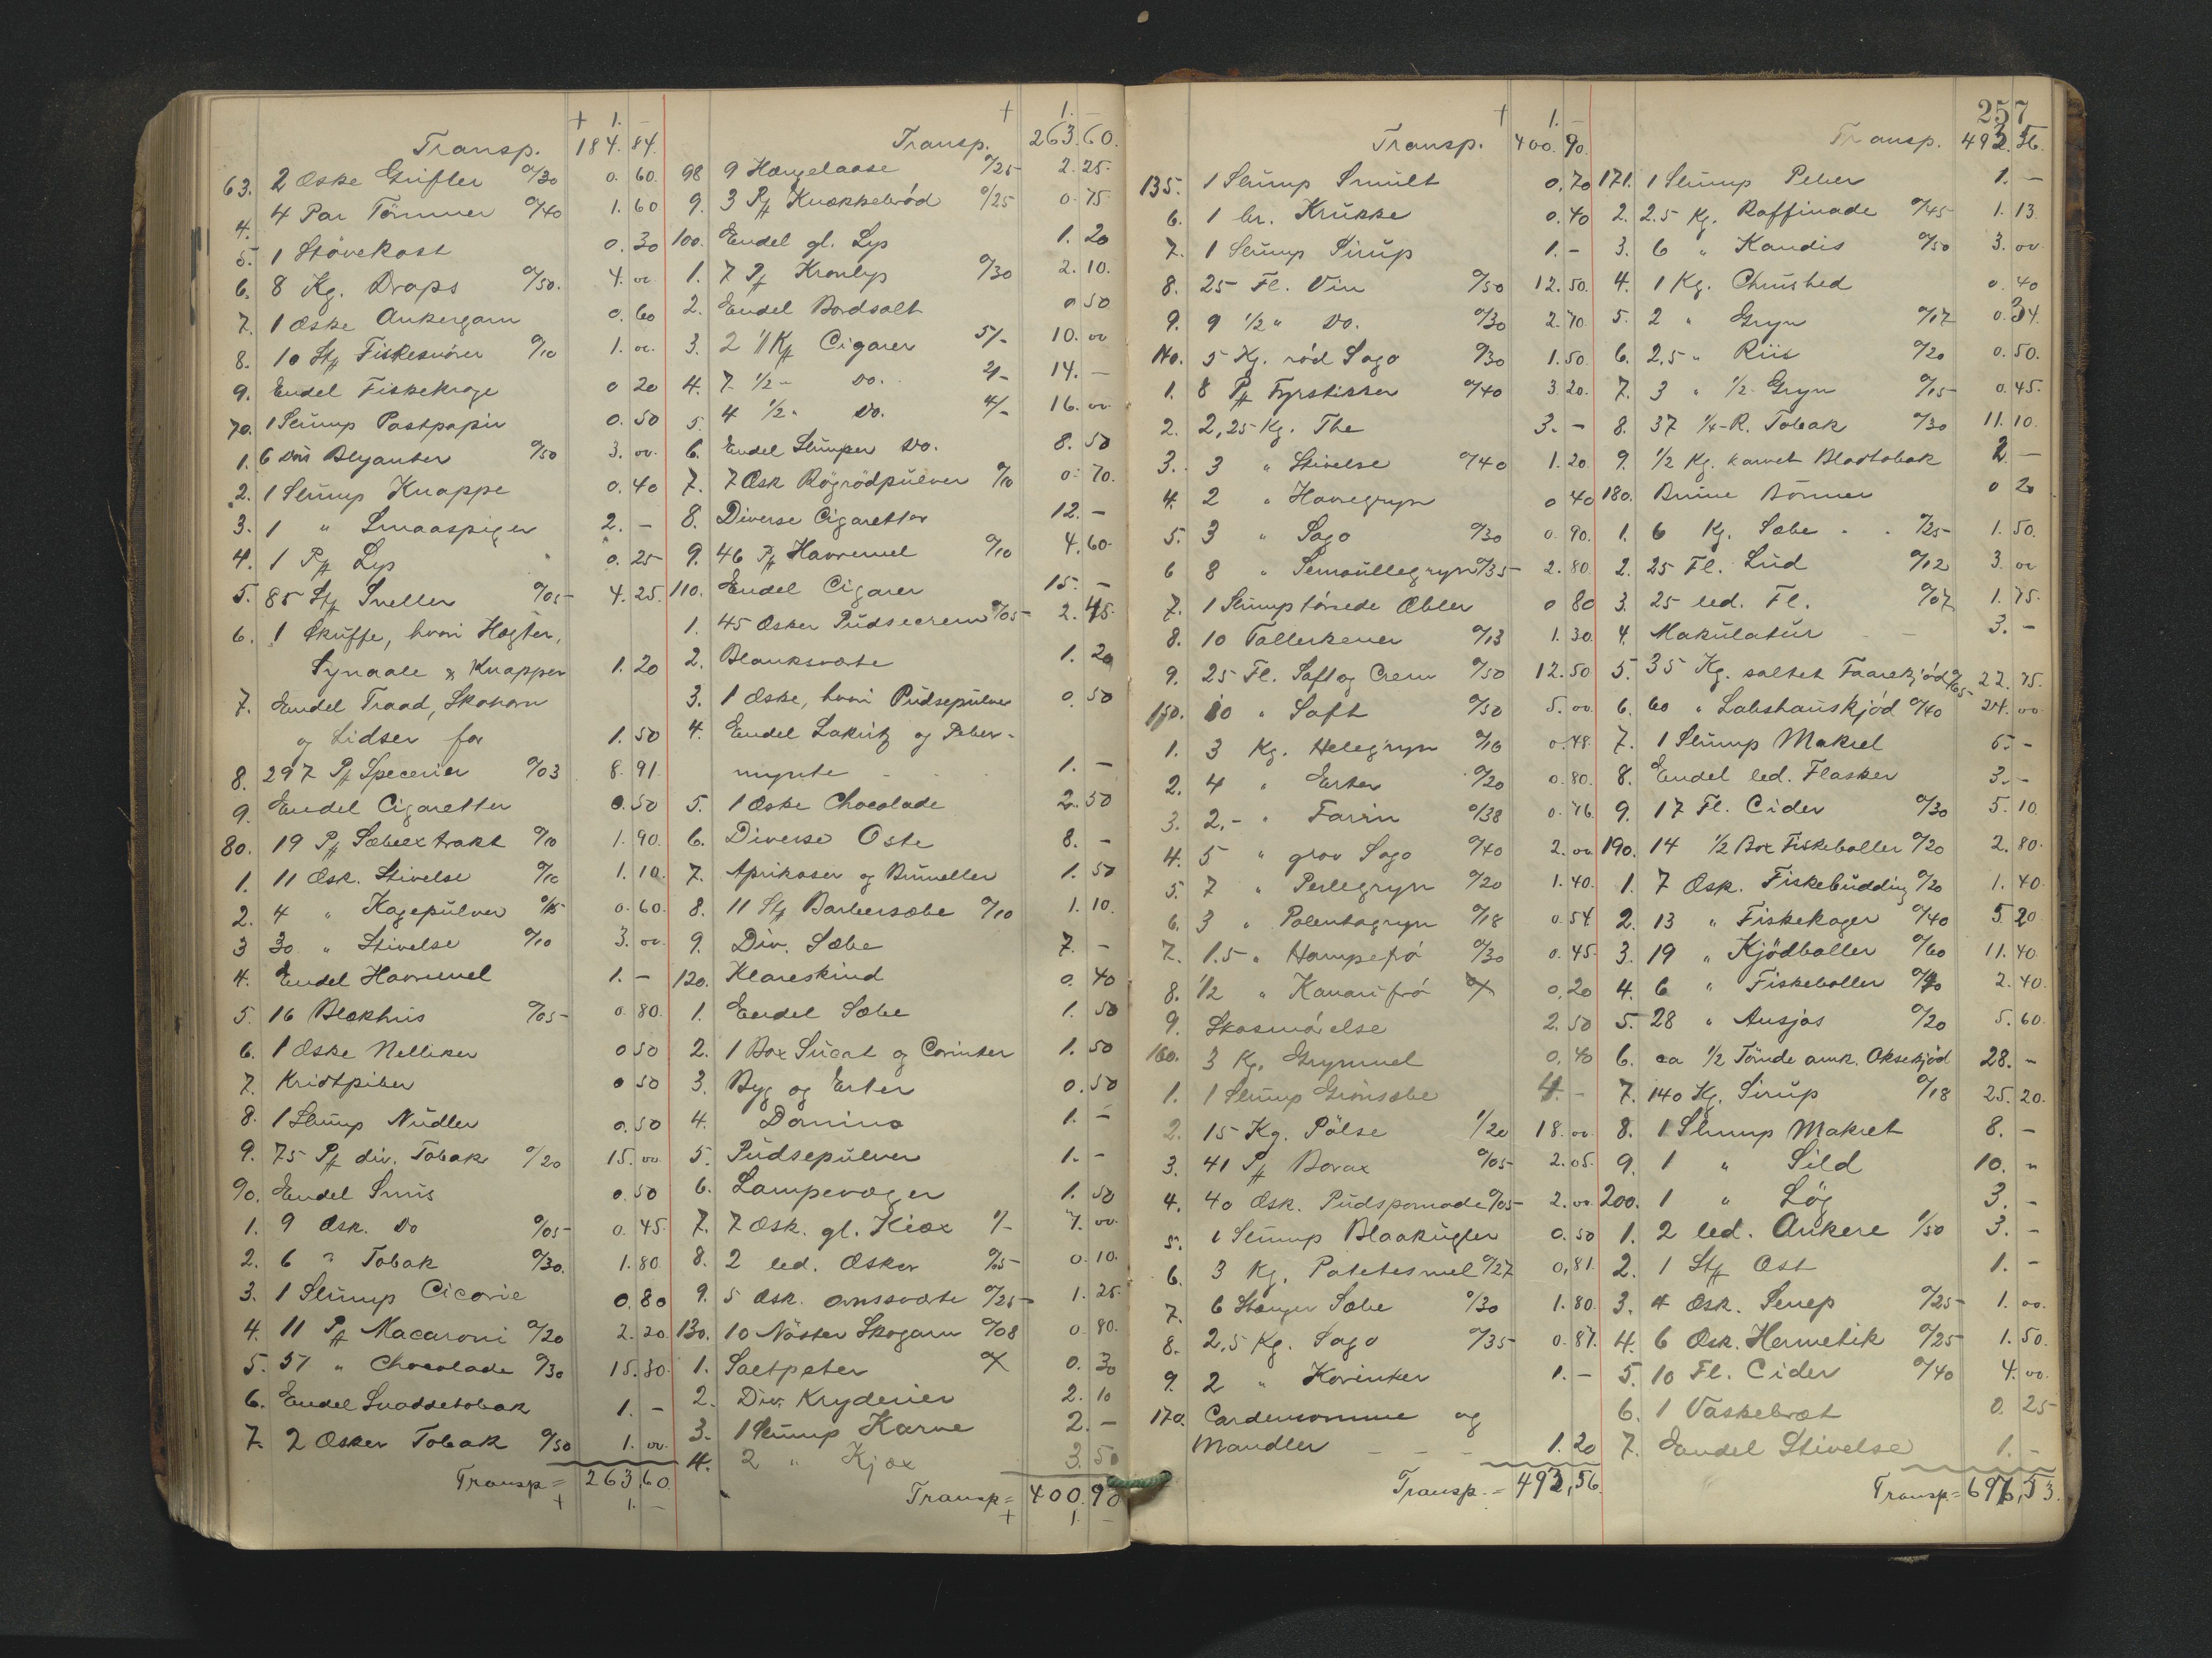 + 1. –
Transp. 184. 84.
63. 2 Æske Grifler 0/30 0. 60.
4. 4 Par Tömmer 0/40 1. 60
5. 1 Stövekost 0. 30
6. 8 Kg. Drops 0/50. 4. oo
7. 1 Æske Ankergarn 0. 60
8. 10 Stk Fiskesnörer 0/10 1. oo.
9. Endel Fiskekroge 0 20
70. 1 Slump Postpapir 0. 50
1. 6 Dus Blyanter 0/50 3. oo.
2. 1 Slump Knappe 0. 40
3. 1 " Smaaspiger 2. –
4. 1 Pk Lys 0. 25
5. 85 Stk Sneller 0/05 4. 25.
6. 1 Skuffe, hvori Hægter,
Synaale & Knapper 1. 20
7. Endel Traad, Skohorn
og Lidser for 1. 50
8. 297 Pk Specerier 0/03 8. 91
9. Endel Cigaretter 0. 50
80. 19 Pk Sæbeextrakt 0/10 1. 90.
1. 11 Æsk. Stivelse 0/10 1. 10.
2. 4 " Kagepulver 0/15 0. 60.
3 30 " Stivelse 0/10 3. oo.
4. Endel Havremel 1. –
5. 16 Blækhus 0/05 0. 80.
6. 1 Æske Nelliker 0 50
7. Kridtpiber 0 50
8. 1 Slump Nudler 0. 50
9. 75 Pk div. Tobak 0/20 15. oo
90. Endel Snus 0. 50
1. 9 Æsk. Do 0/05 0. 45.
2. 6 " Tobak 0/30. 1. 80
3. 1 Slump Cicorie 0. 80
4. 11 Pk Macaroni 0/20 2. 20
5. 51 " Chocolade 0/30 15. 30.
6. Endel Snaddetobak 1. –
7. 2 Æsker Tobak 0/50 1. oo.
Transp = 263,60
+ 1. –
+ 1. –
Transp. 263. 60.
98 9 Hængelaase 0/25 2. 25.
9. 3 Pk Knækkebröd 0/25 0. 75.
100. Endel gl. Lys 1. 20
1. 7 Pk Kronlys 0/30 2. 10.
2. Endel Bordsalt 0 50
3. 2 1/1 Ks Cigarer 5/- 10. oo
4. 7 1/2 – Do. 2/- 14. –
5. 4 1/2 " Do. 4/- 16. oo
6. Endel Slumper Do. 8. 50
7. 7 Æsk Rögrödpulver 0/10 0. 70.
8. Diverse Cigaretter 12. –
9. 46 Pk Havremel 0/10 4. 60.
110. Endel Cigarer 15. –
1. 45 Æsker Pudsecrem 0/05 2. 45.
2. Blanksværte 1. 20
3. 1 Æske, hvori Pudsepulver 0. 50
4. Endel Lakritz og Peber-
mynte 1. –
5. 1 Æske Chocolade 2. 50
6. Diverse Oste 8. –
7. Aprikoser og Bruneller 1. 50
8. 11 Stk Barbersæbe 0/10 1. 10.
9. Div. Sæbe 7. –
120. Klareskind 0. 40
1. Endel Sæbe 1. 50
2. 1 Box Sucat og Corinter 1. 50
3. Byg og Erter 0. 50
4. Domino 1. –
5. Pudsepulver 1. –
6. Lampevæger 1. 50
7. 7 Æsk. gl. Kiæx 1/- 7. oo
8. 2 led. Æsker 0/05 0. 10.
9. 5 Æsk. ovnssværte 0/25 1. 25.
130. 10 Nöster Skogarn 0/08 0. 80.
1. Saltpeter 0. 30
2. Div. Kryderier 2. 10
3. 1 Slump Karve 2. –
4. 2 " Kjæx 3. 50
Transp = 400. 90
+ 1. –
+ 1. –
Transp. 400. 90.
135. 1 Slump Smult 0. 70
6. 1 br. Krukke 0. 40
7. 1 Slump Sirup 1. –
8. 25 Fl. Vin 0/50 12. 50.
9. 9 1/2 " Do. 0/30 2. 70
140. 5 Kg. röd Sago 0/30 1. 50
1. 8 Pk Fyrstikker 0/40 3 20.
2. 2,25 Kg. The 3. –
3. 3 " Stivelse 0/40 1. 20
4. 2 " Havregryn 0 40
5. 3 " Sago 0/30 0. 90.
6 8 " Semoullegryn 0/35 2. 80.
7. 1 Slump törrede Æbler 0 80
8. 10 Tallerkener 0/13 1. 30.
9. 25 Fl. Saft og Crem 0/50 12. 50
150. 10 " Saft 0/50 5. oo
1. 3 Kg. Helegryn 0/16 0. 48.
2. 4 " Erter 0/20 0. 80.
3. 2,- " Farin 0/38 0. 76
4. 5 " grov Sago 0/40 2. oo
5. 7 " Perlegryn 0/20 1. 40.
6. 3 " Polentagryn 0/18 0. 54.
7. 1.5 " Hampefrö 0/30 0. 45.
8. 1/2 " Kanarifrö 0. 20
9. Skosmörelse 2. 50
160. 3 Kg. Grynmel 0. 40
1. 1 Slump Grönsæbe 4. –
2. 15 Kg. Pölse 1/20 18. oo
3. 41 Pk Borax 0/05 2. 05.
4. 40 Æsk. Pudspomade 0/05 2. oo
5. 1 Slump Blaakugler 0. 50
6. 3 Kg. Potetesmel 0/27 0, 81.
7. 6 Stænger Sæbe 0/30 1. 80.
8. 2,5 Kg. Sago 0/35 0. 87.
9. 2 " Korinter 1. –
170. Cardemomme og
Mandler – – – 1. 20
Transp. = 493,56
257
Transp. 493. 56.
171. 1 Slump Peber 1. –
2. 2.5 Kg. Raffinade 0/45 1. 13.
3. 6 " Kandis 0/50 3. oo
4. 1 Kg. Chrushed 0. 40
5. 2 " Gryn 0/17 0. 34.
6. 2,5 " Riis 0/20 0. 50.
7. 3 " 1/2 Gryn 0/15 0. 45.
8. 37 1/4 R. Tobak 0/30 11. 10.
9. 1/2 Kg. karvet Bladtobak 2. –
180. Brune Bönner 0 20
1. 6 Kg. Sæbe 0/25 1. 50.
2. 25 Fl. Lud 0/12 3. oo
3. 25 led. Fl. 0/07 1. 75.
4. Makulatur – 3. –
5. 35 Kg. saltet Faarekjöd 0/65 22. 75.
6. 60 " Labskauskjöd 0/40 24. oo
7. 1 Slump Makrel 5 –
8. Endel led. Flasker 3. –
9. 17 Fl. Cider 0/30 5. 10.
190. 14 1/2 Box Fiskeboller 0/20 2. 80.
1. 7 Æsk. Fiskebudding 0/20 1. 40.
2. 13 " Fiskekager 0/40 5 20
3. 19 " Kjödboller 0/60 11. 40
4. 6 " Fiskeboller 0/40 2. 40.
5. 28 " Ansjos 0/20 5. 60.
6. ca 1/2 Tönde amk. Oksekjöd 28. –
7. 140 Kg. Sirup 0/18 25. 20.
8. 1 Slump Makrel 8. –
9. 1 " Sild 10. "
200. 1 " Lög 3. –
1. 2 led. Ankere 1/50 3. –
2. 1 Stk Ost 1. –
3. 4 Æsk. Senep 0/25 1. oo.
4. 6 Æsk. Hermetik 0/25 1. 50.
5. 10 Fl. Cider 0/40 4. oo.
6. 1 Vaskebræt 0. 25
7. Eendel Stivelse 1. –
Transp. = 697,53.